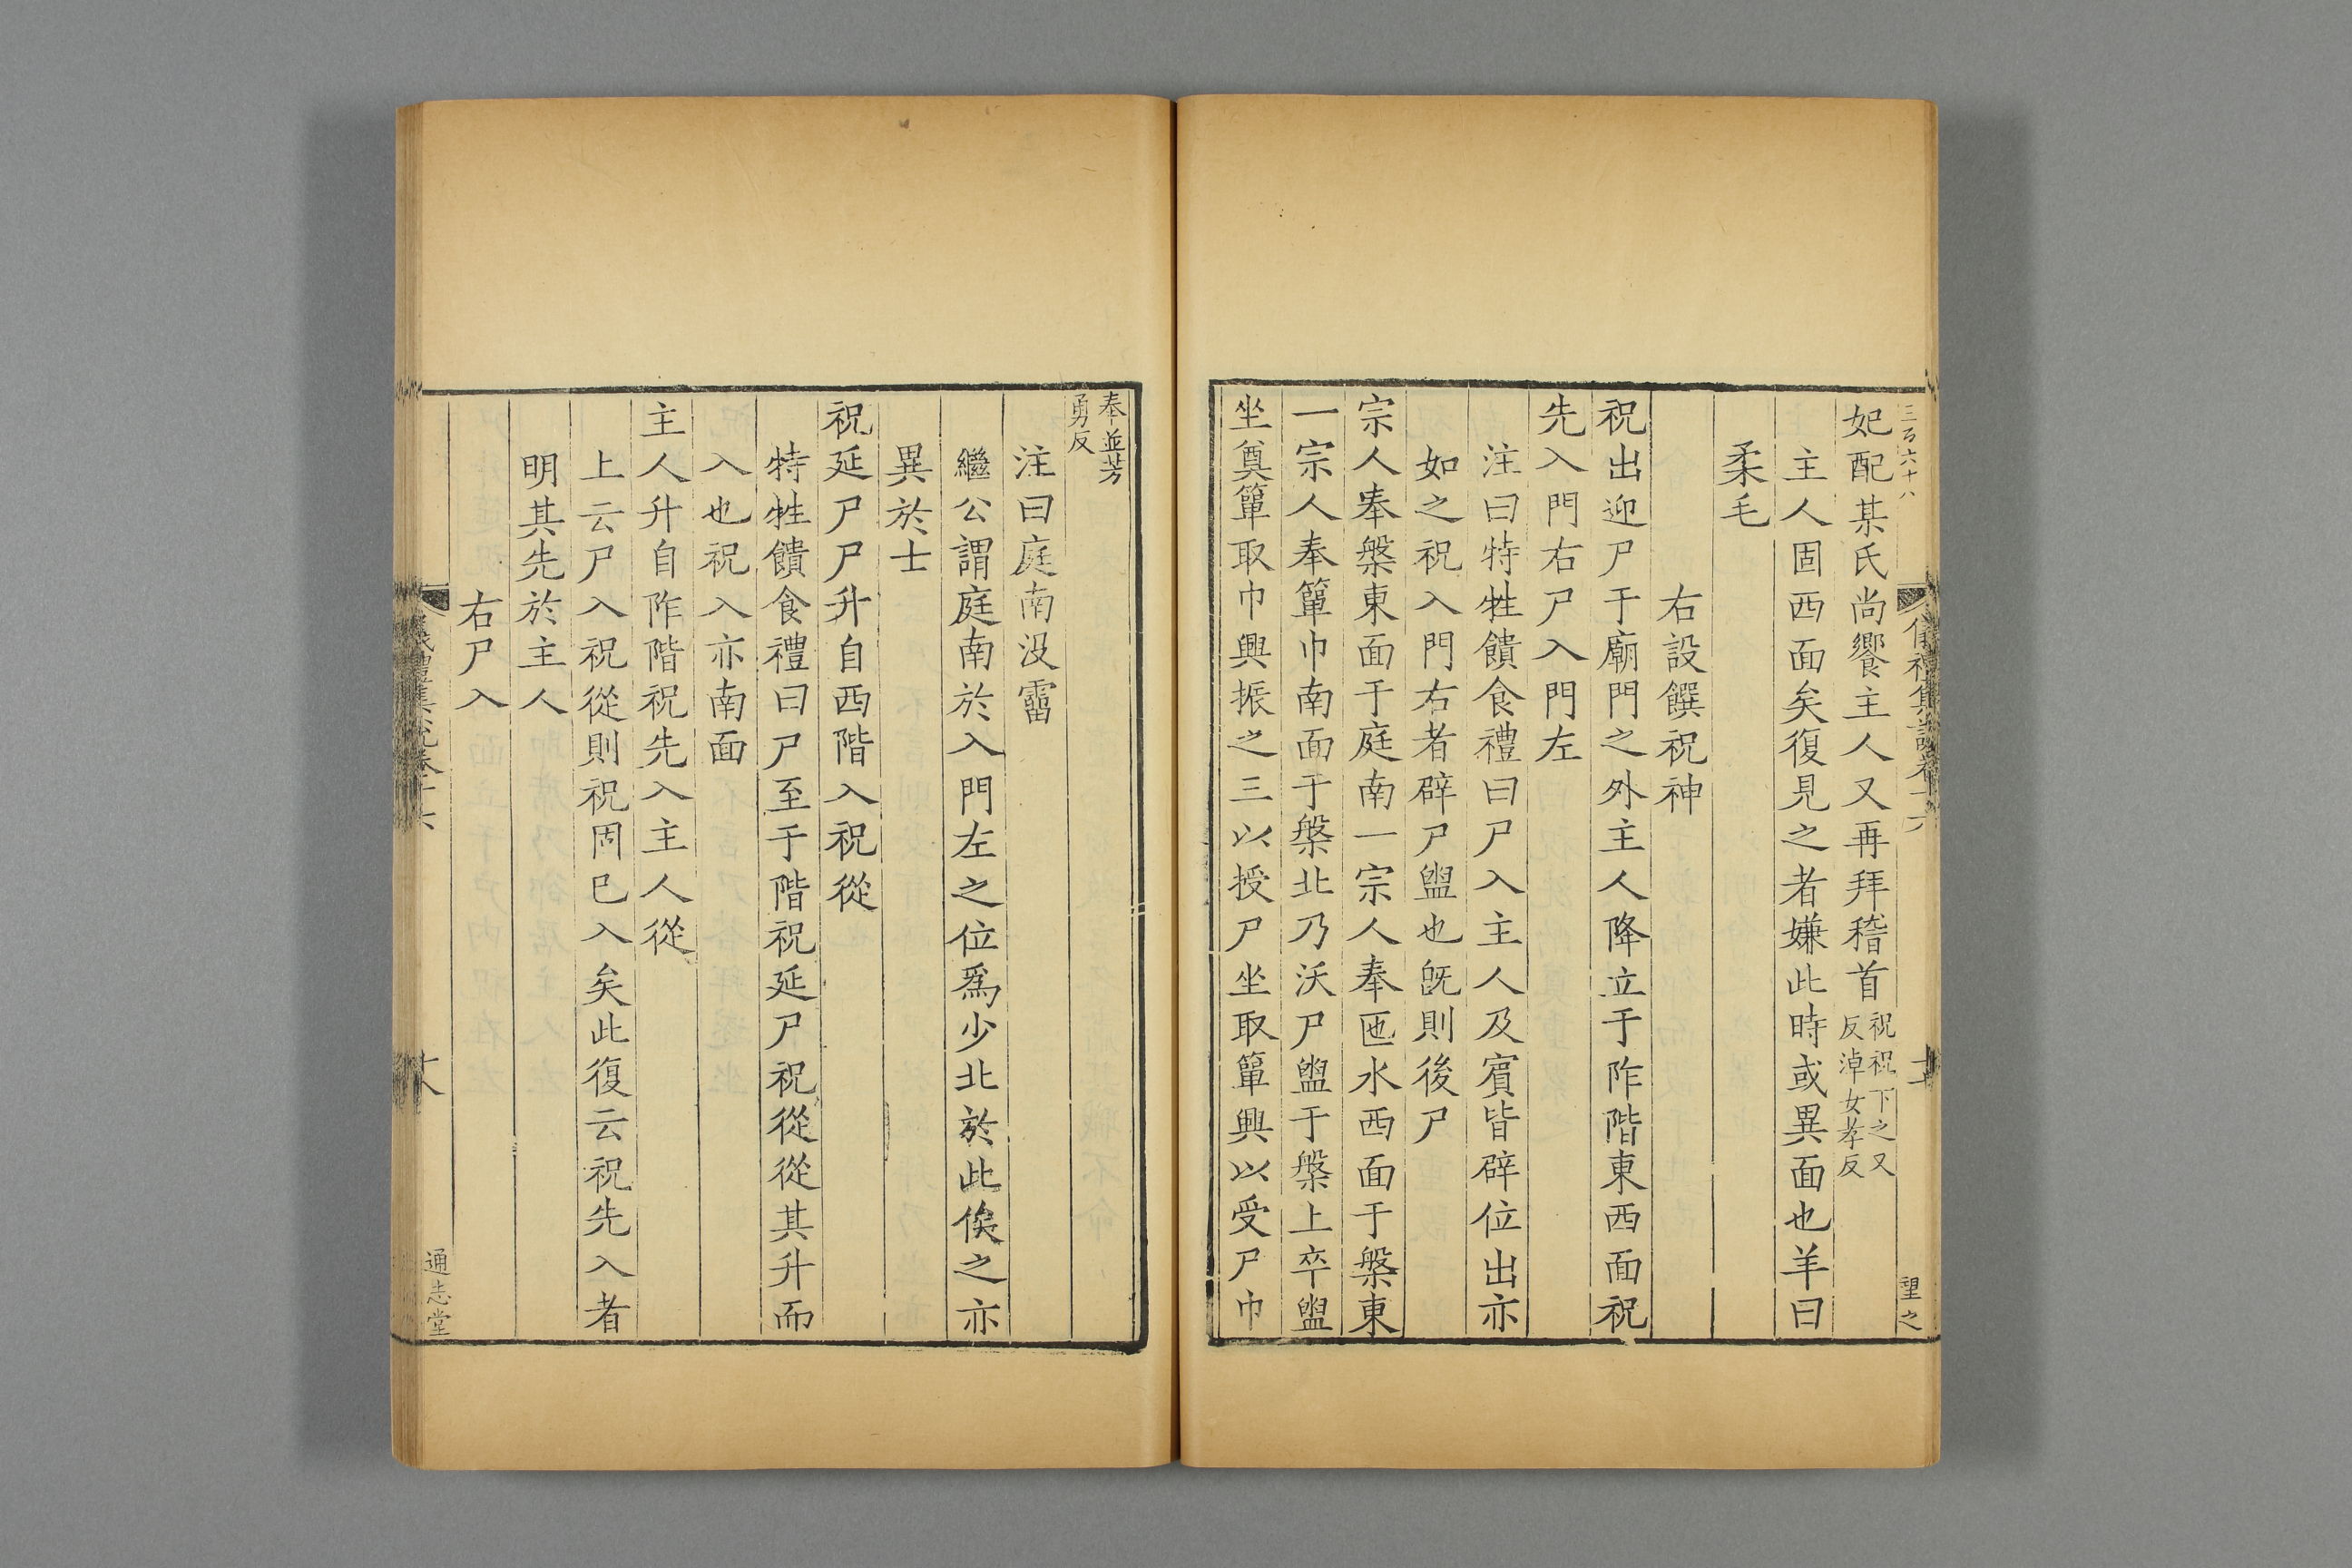 三百六十八
妃配某氏尚饗主人又再拜稽首祝祝下之又反淖女孝反
主人固西面矣復見之者嫌此時或異面也羊曰
柔毛
右設饌祝神
祝出迎尸于廟門之外主人降立于阼階東西面祝
先入門右尸入門左
注曰特牲饋食禮曰尸入主人及賓皆辟位出亦
如之祝入門右者辟尸盥也旣則後尸
宗人奉槃東面于庭南一宗人奉匜水西面于槃東
一宗人奉簞巾南面于槃北乃沃尸盥于槃上卒盥
坐奠簞取巾興振之三以授尸坐取簞興以受尸巾
望之
奉並芳勇反
注曰庭南沒霤
繼公謂庭南於入門左之位爲少北於此俟之亦
異於士
祝延尸尸升自西階入祝從
特牲饋食禮曰尸至于階祝延尸祝從從其升而
入也祝入亦南面
主人升自阼階祝先入主人從
上云尸入祝從則祝固已入矣此復云祝先入者
明其先於主人
右尸入
通志堂